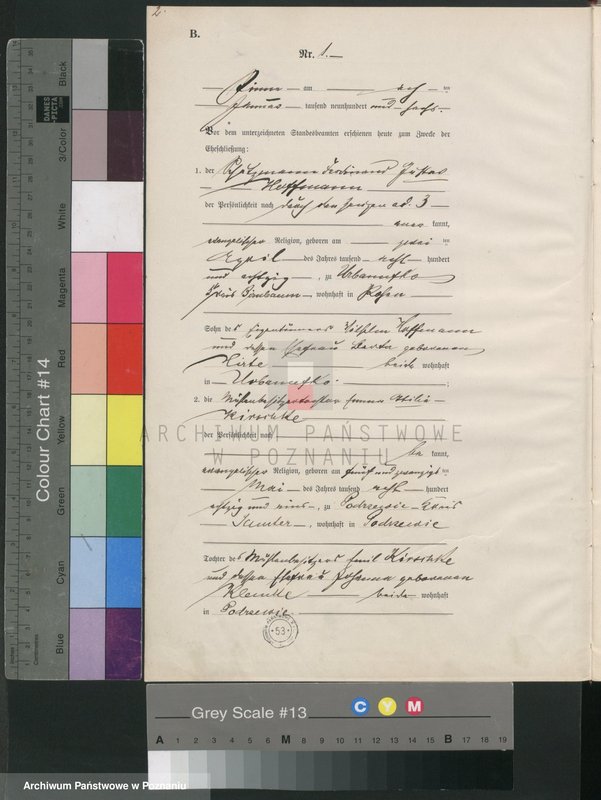 2.
B.
Nr. 1.
Pinne am acht ten
Januar tausend neunhundert und sechs.
Vor dem unterzeichneten Standesbeamten erschienen heute zum Zwecke der
Eheschließung:
1. der Ferdinand Julius
Hoffmann
der Persönlichkeit nach durch den zu 3
kannt,
evangelischer Religion, geboren am zwei ten
April des Jahres tausend acht hundert
und achtzig, zu Urbanufko
Kreis Birnbaum wohnhaft in Posen
Sohn des Eigentümers Wilhelm Hoffmann
und dessen Ehefrau geborenen
beide wohnhaft
in Urbanufko ;
2. die Mühlenbesitzertochter Emma Ottilie
Kirschke
der Persönlichkeit nach
be kannt,
evangelischer Religion, geboren am fünfundzwanzigs ten
Mai des Jahres tausend acht hundert
achtzig und eins, zu Podrzewie Kreis
Samter, wohnhaft in Podrzewie
Tochter des Mühlenbesitzers Emil Kirschke
und dessen Ehefrau Johanna geborenen
Klemke beide wohnhaft
in Podrzewie.
53
ARCHIWUM PAŃSTWOWE
W POZNANIU
Colour Chart #14
Blue Cyan Green Yellow Red Magenta White 3/Color Black
DANES
PICTA
Centimetres
inches
Grey Scale #13
C Y M
A 1 2 3 4 5 6 M 8 9 10 11 12 13 14 15 B 17 18 19
Archiwum Państwowe w Poznaniu